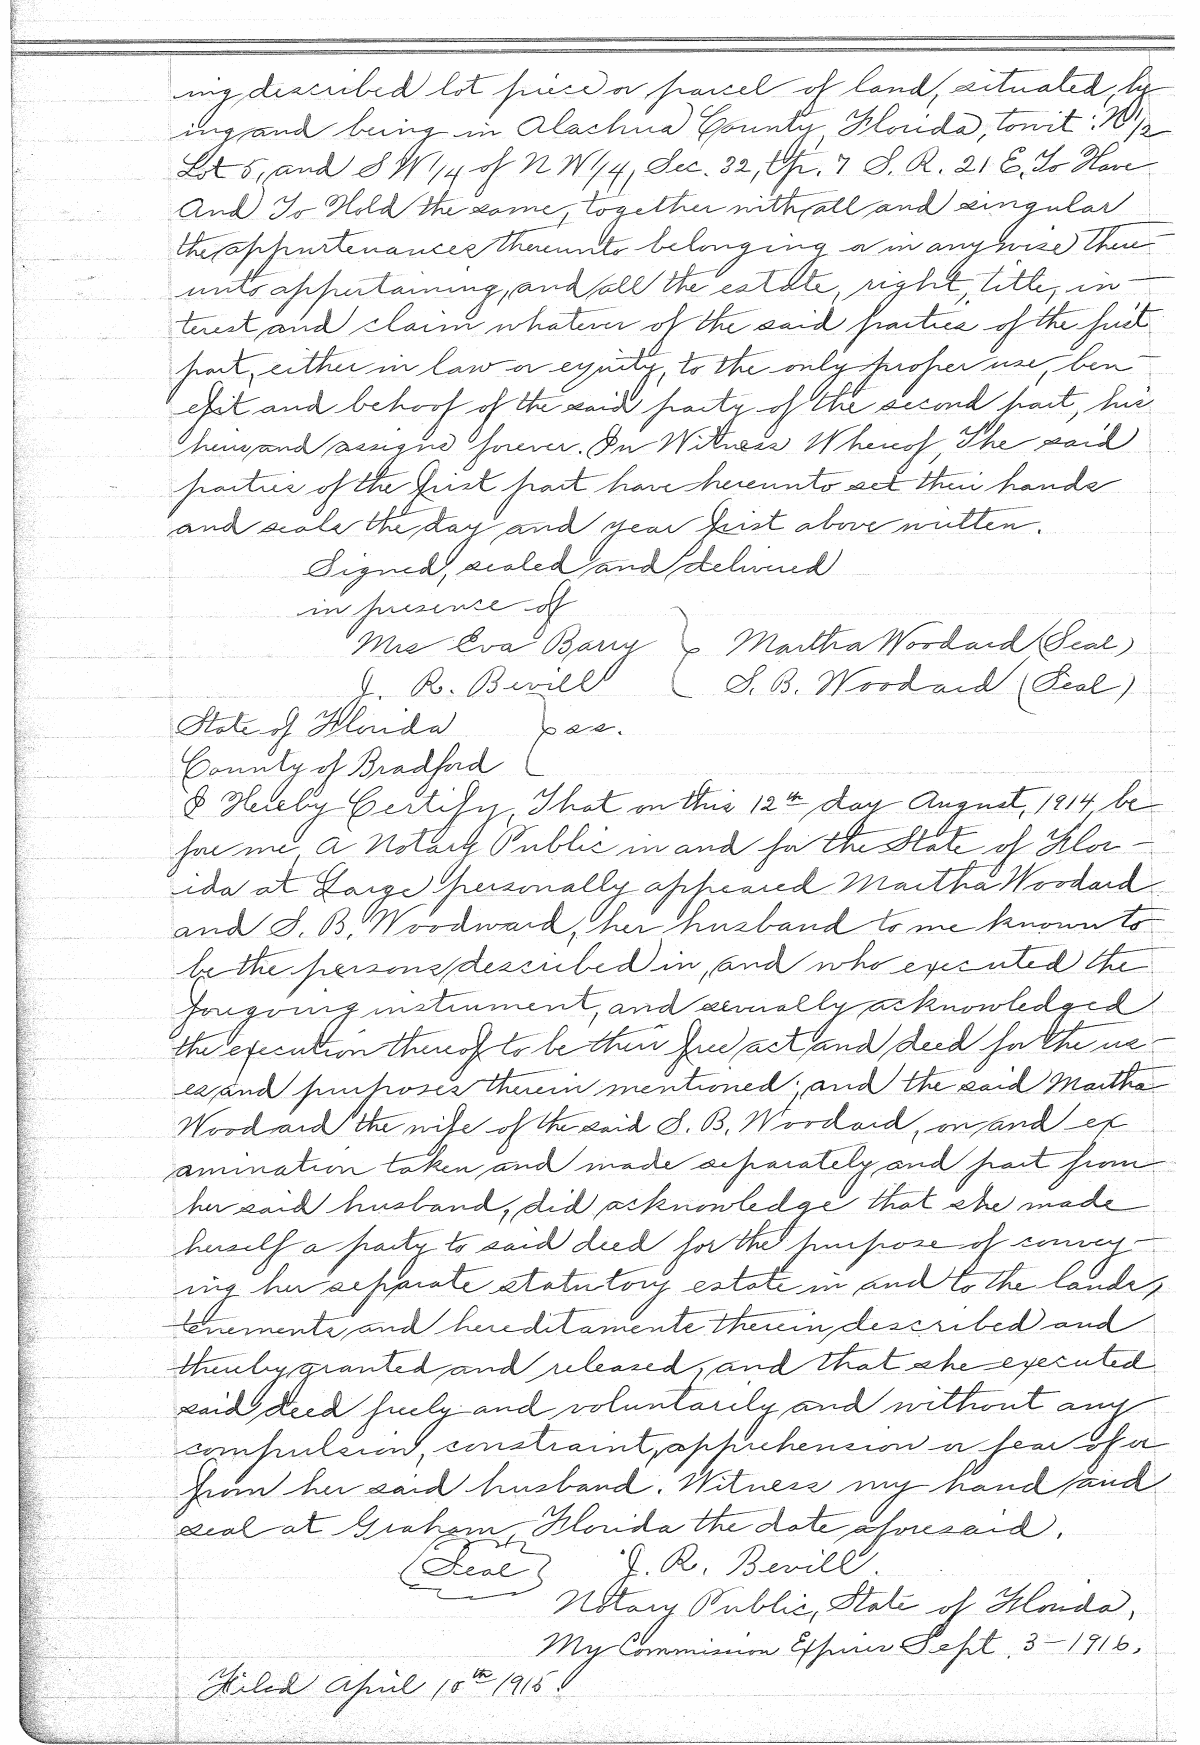 ing described lot piece or parcel of land, situated, ly
ing and being in Alachua County, Florida, towit: N 1/2
Lot 5, and S W 1/4 of N W 1/4, Sec. 32, Tp. 7 S. R. 21 E. To Have
And To Hold the same, together with all and singular
the appurtenances thereunto belonging or in anywise there
unto appertaining, and all the estate, right, title, in-
terest and claim whatever of the said parties of the first
part, either in law or equity, to the only proper use, ben-
efit and behoof of the said party of the second part, his
heirs and assigns forever. In Witness Whereof, The said
parties of the first part have hereunto set their hands
and seals the day and year first above written.
Signed, sealed and delivered
in presence of
Mrs Eva Barry } Martha Woodard (Seal)
J. R. Bevill S. B. Woodard (Seal)
State of Florida } s.s.
County of Bradford
I Hereby Certify, That on this 12th day August, 1914, be-
fore me, a Notary Public in and for the State of Flor-
ida at Large personally appeared Martha Woodard
and S. B. Woodward, her husband to me known to
be the persons described in, and who executed the
foregoing instrument, and severally acknowledged
the execution thereof to be their free act and deed for the us-
es and purposes therein mentioned; and the said Martha
Woodard the wife of the said S. B. Woodard, on and ex
amination taken and made separately and part from
her said husband, did acknowledge that she made
herself a party to said deed for the purpose of convey-
ing her separate statutory estate in and to the lands,
tenements and hereditaments therein described and
thereby granted and released, and that she executed
said deed freely and voluntarily and without any
compulsion, constraint, apprehension or fear of or
from her said husband. Witness my hand and
seal at Graham, Florida the date aforesaid.
(Seal) J. R. Bevill.
Notary Public, State of Florida,
My Commission Expires Sept. 3-1916.
Filed April 10th 1915.